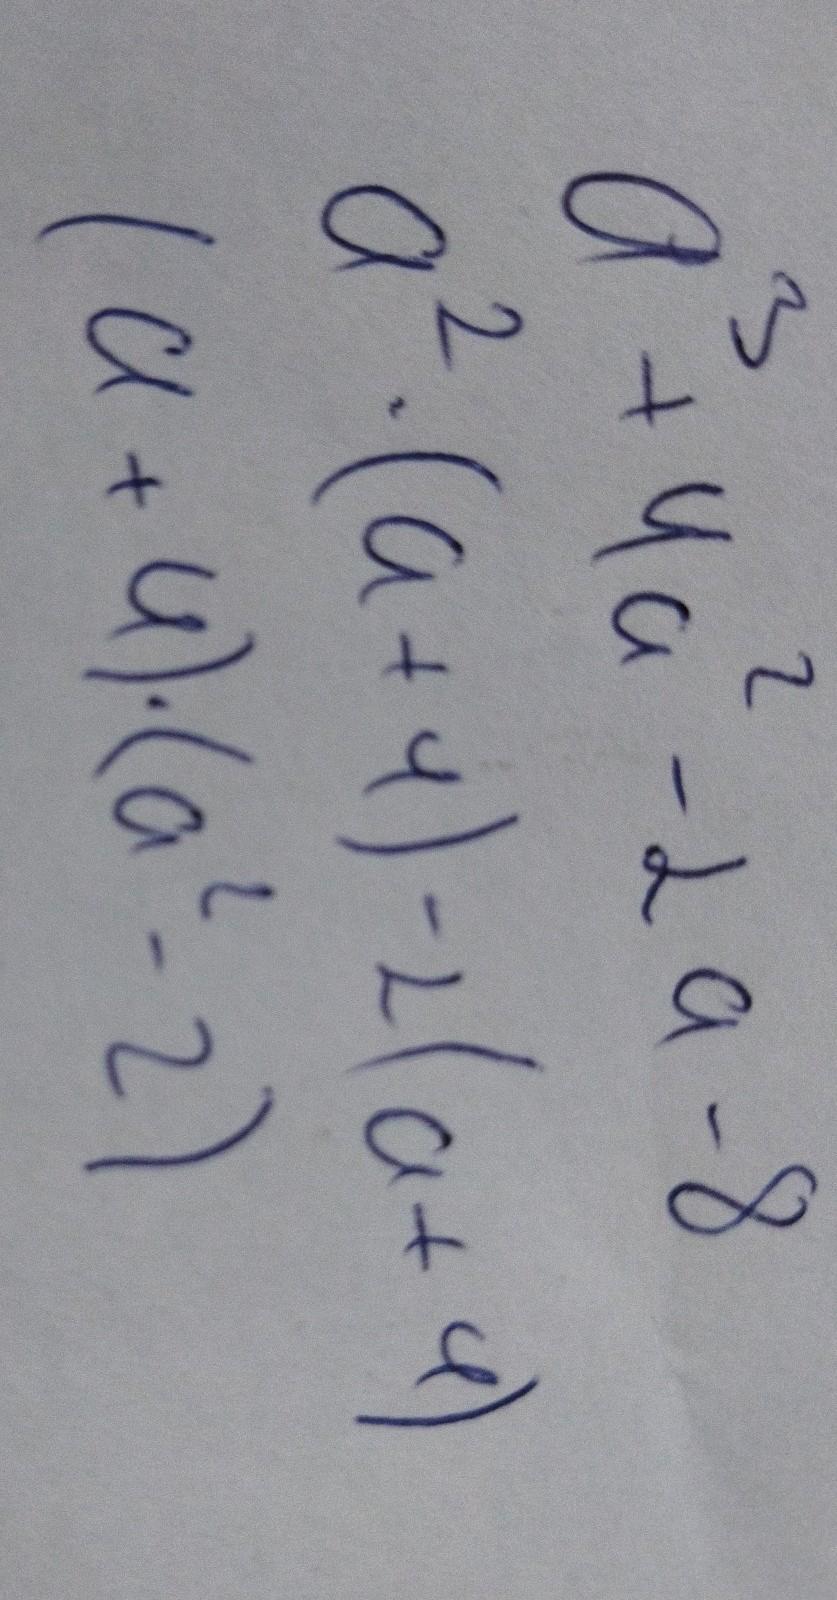 a³ + 4a² - 2a - 8
a² · (a + 4) - 2(a + 4)
(a + 4) · (a² - 2)